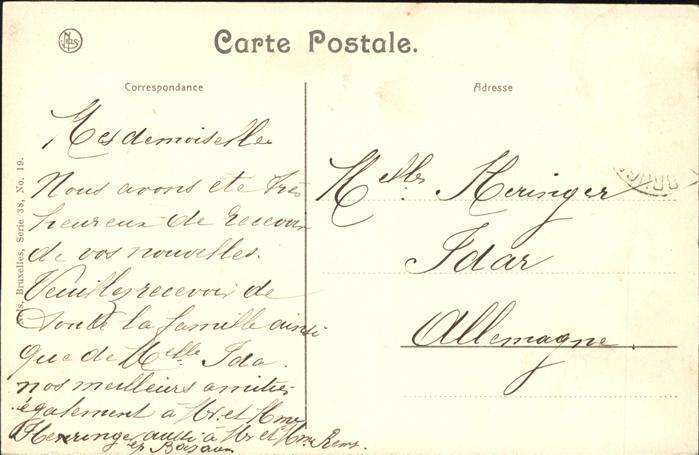 Carte Postale.
Correspondance
Adresse
Nels, Bruxelles, Serie 38, No. 19.
Mesdemoiselles
Nous avons été très
heureux de recevoir
de vos nouvelles.
Veuillez recevoir de
toute la famille ainsi
que de Melle Ida.
nos meilleurs amitiés
également à Mr et Mme
Herringer aussi à Mr et Mme
Melles Heringer
Idar
Allemagne.